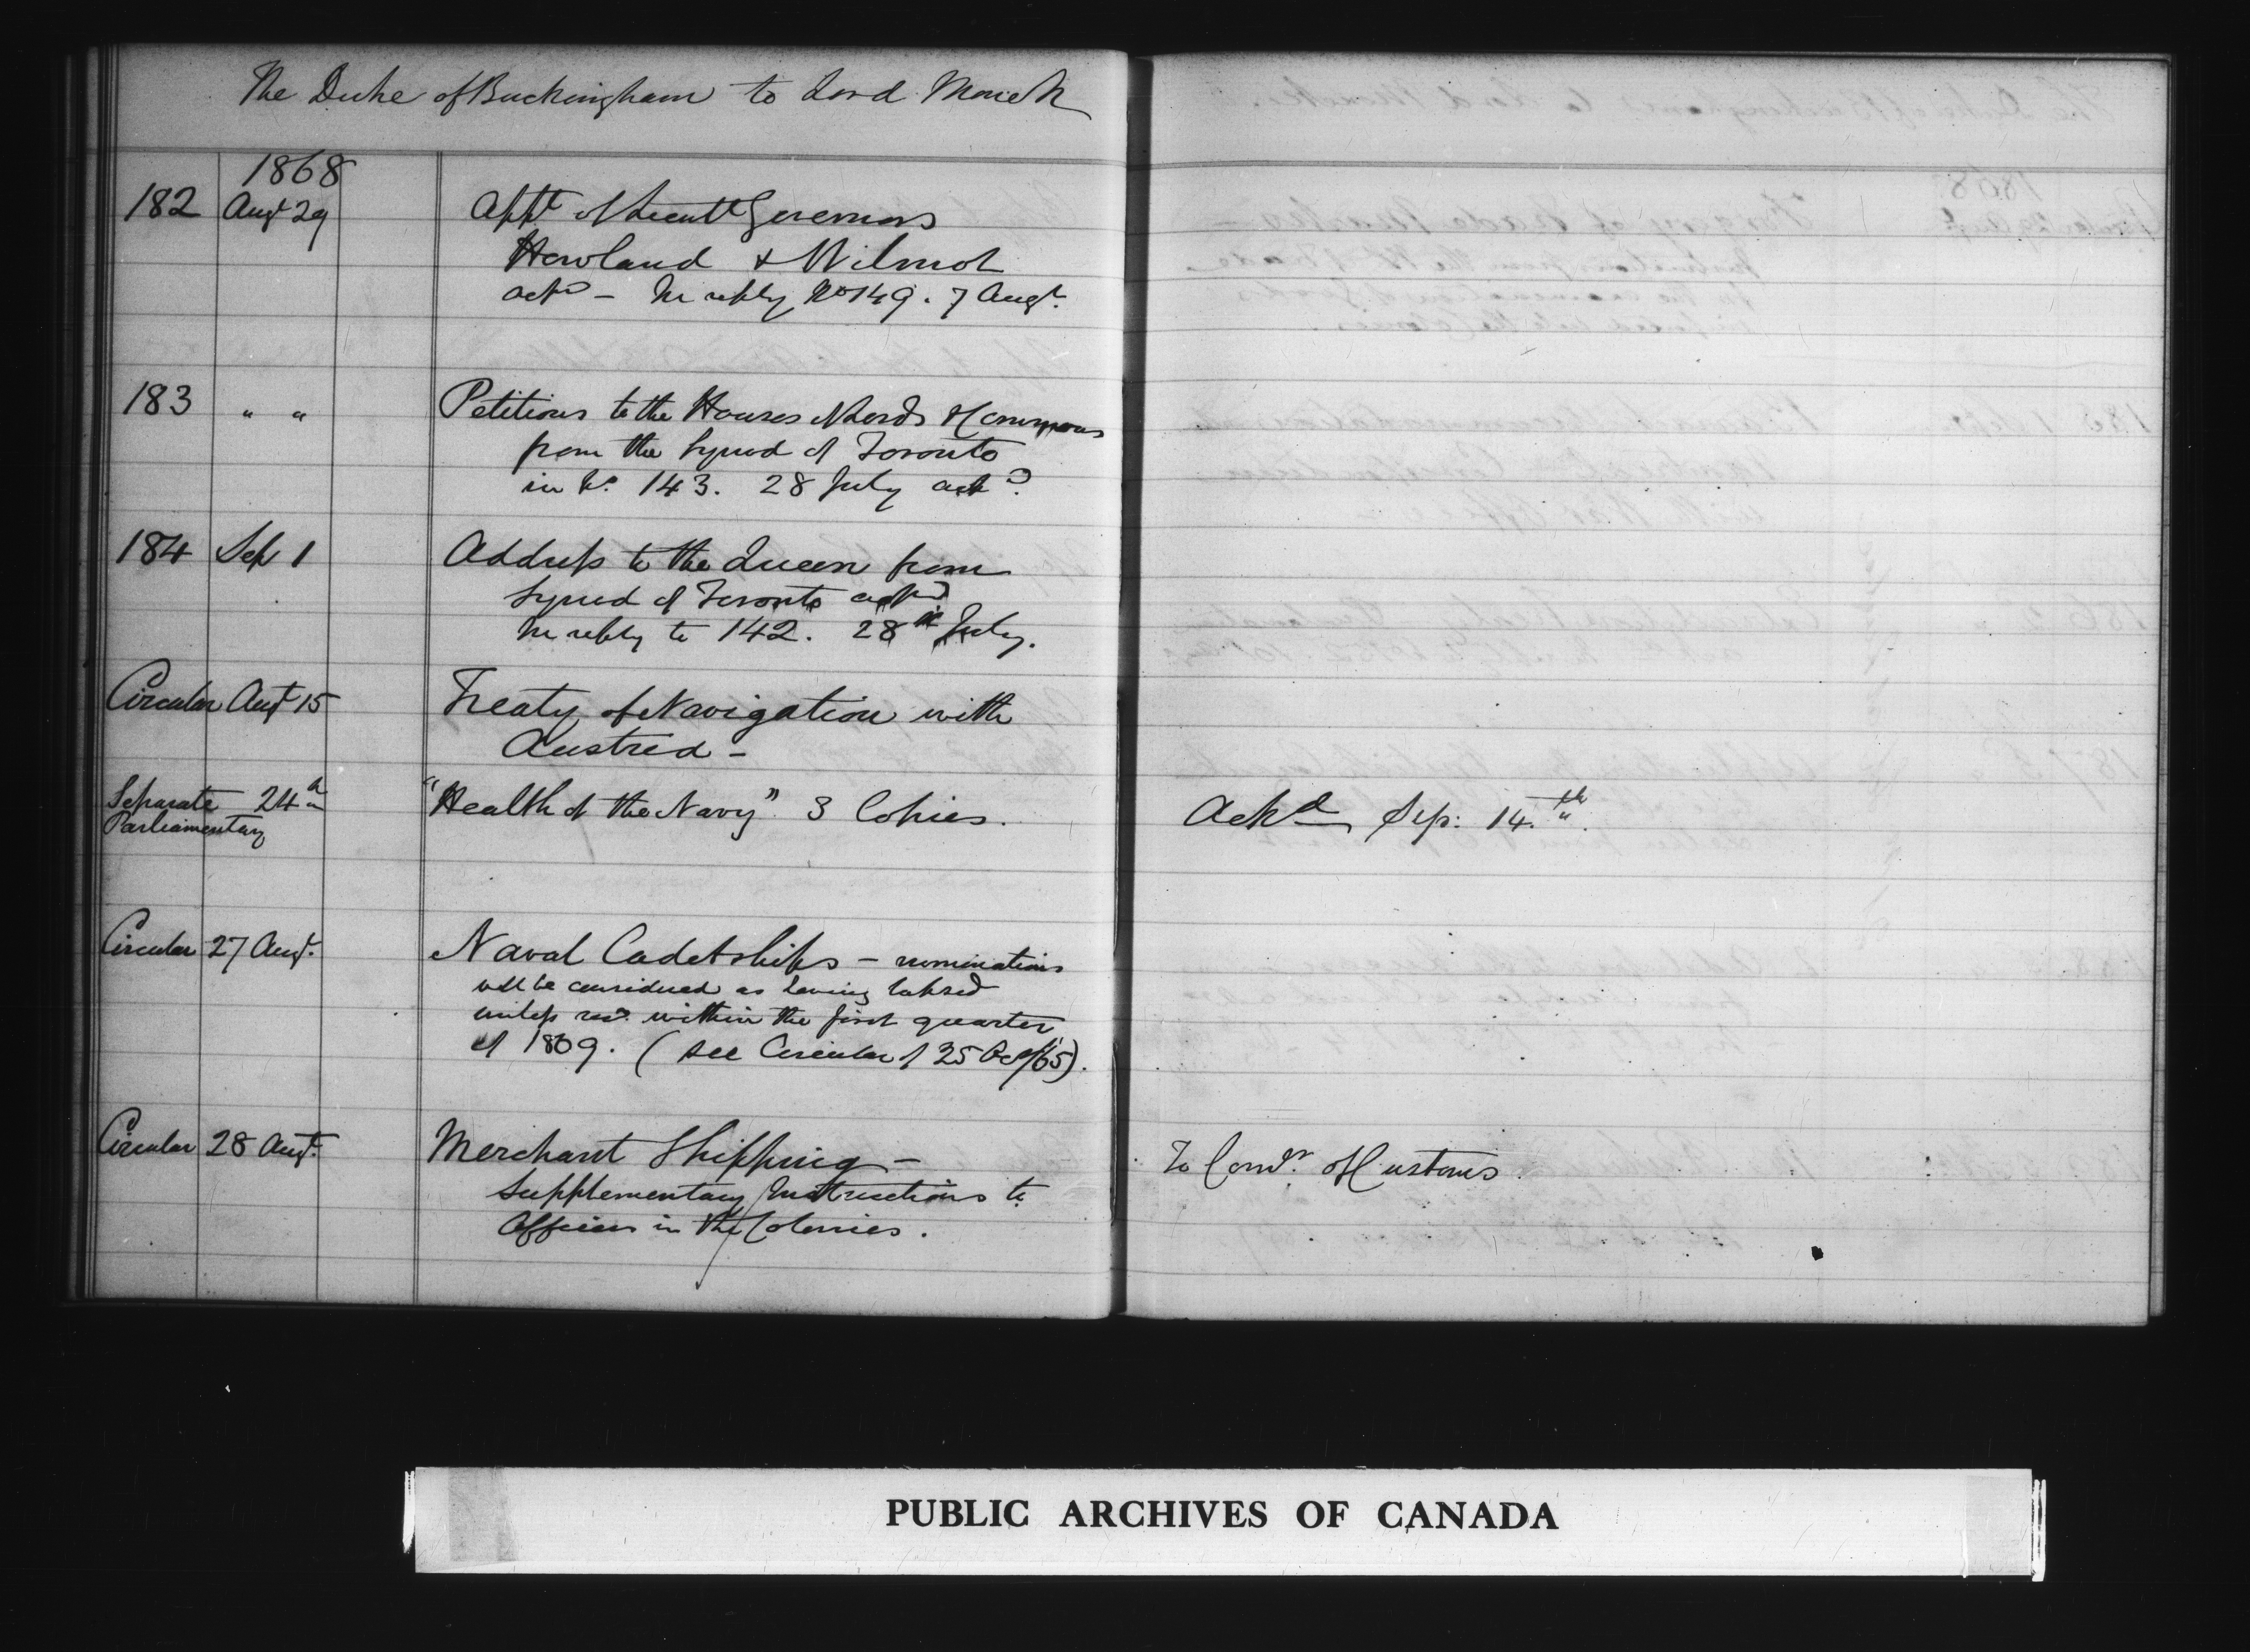 The Duke of Buckingham to Lord Monck
1868
182 Augt 29 Appt of Lieutt Governors
Howland & Wilmot
ackd - In reply No 149. 7 Augt
183 " " Petitions to the Houses of Lords & Commons
from the Synod of Toronto
in No. 143. 28 July ackd.
184 Sep 1 Address to the Queen from
Synod of Toronto ackd
In reply to 142. 28th July.
Circular Augt 15 Treaty of Navigation with
Austria -
Separate 24th "Health of the Navy" 3 Copies. Ackd Sep: 14th.
Parliamentary
Circular 27 Augt. Naval Cadetships - nominations
will be considered as having lapsed
unless recd. within the first quarter
of 1869. (see Circular of 25 /65).
Circular 28 Augt. Merchant Shipping - To Comr. of Customs.
Supplementary Instructions to
Officers in the Colonies.
PUBLIC ARCHIVES OF CANADA